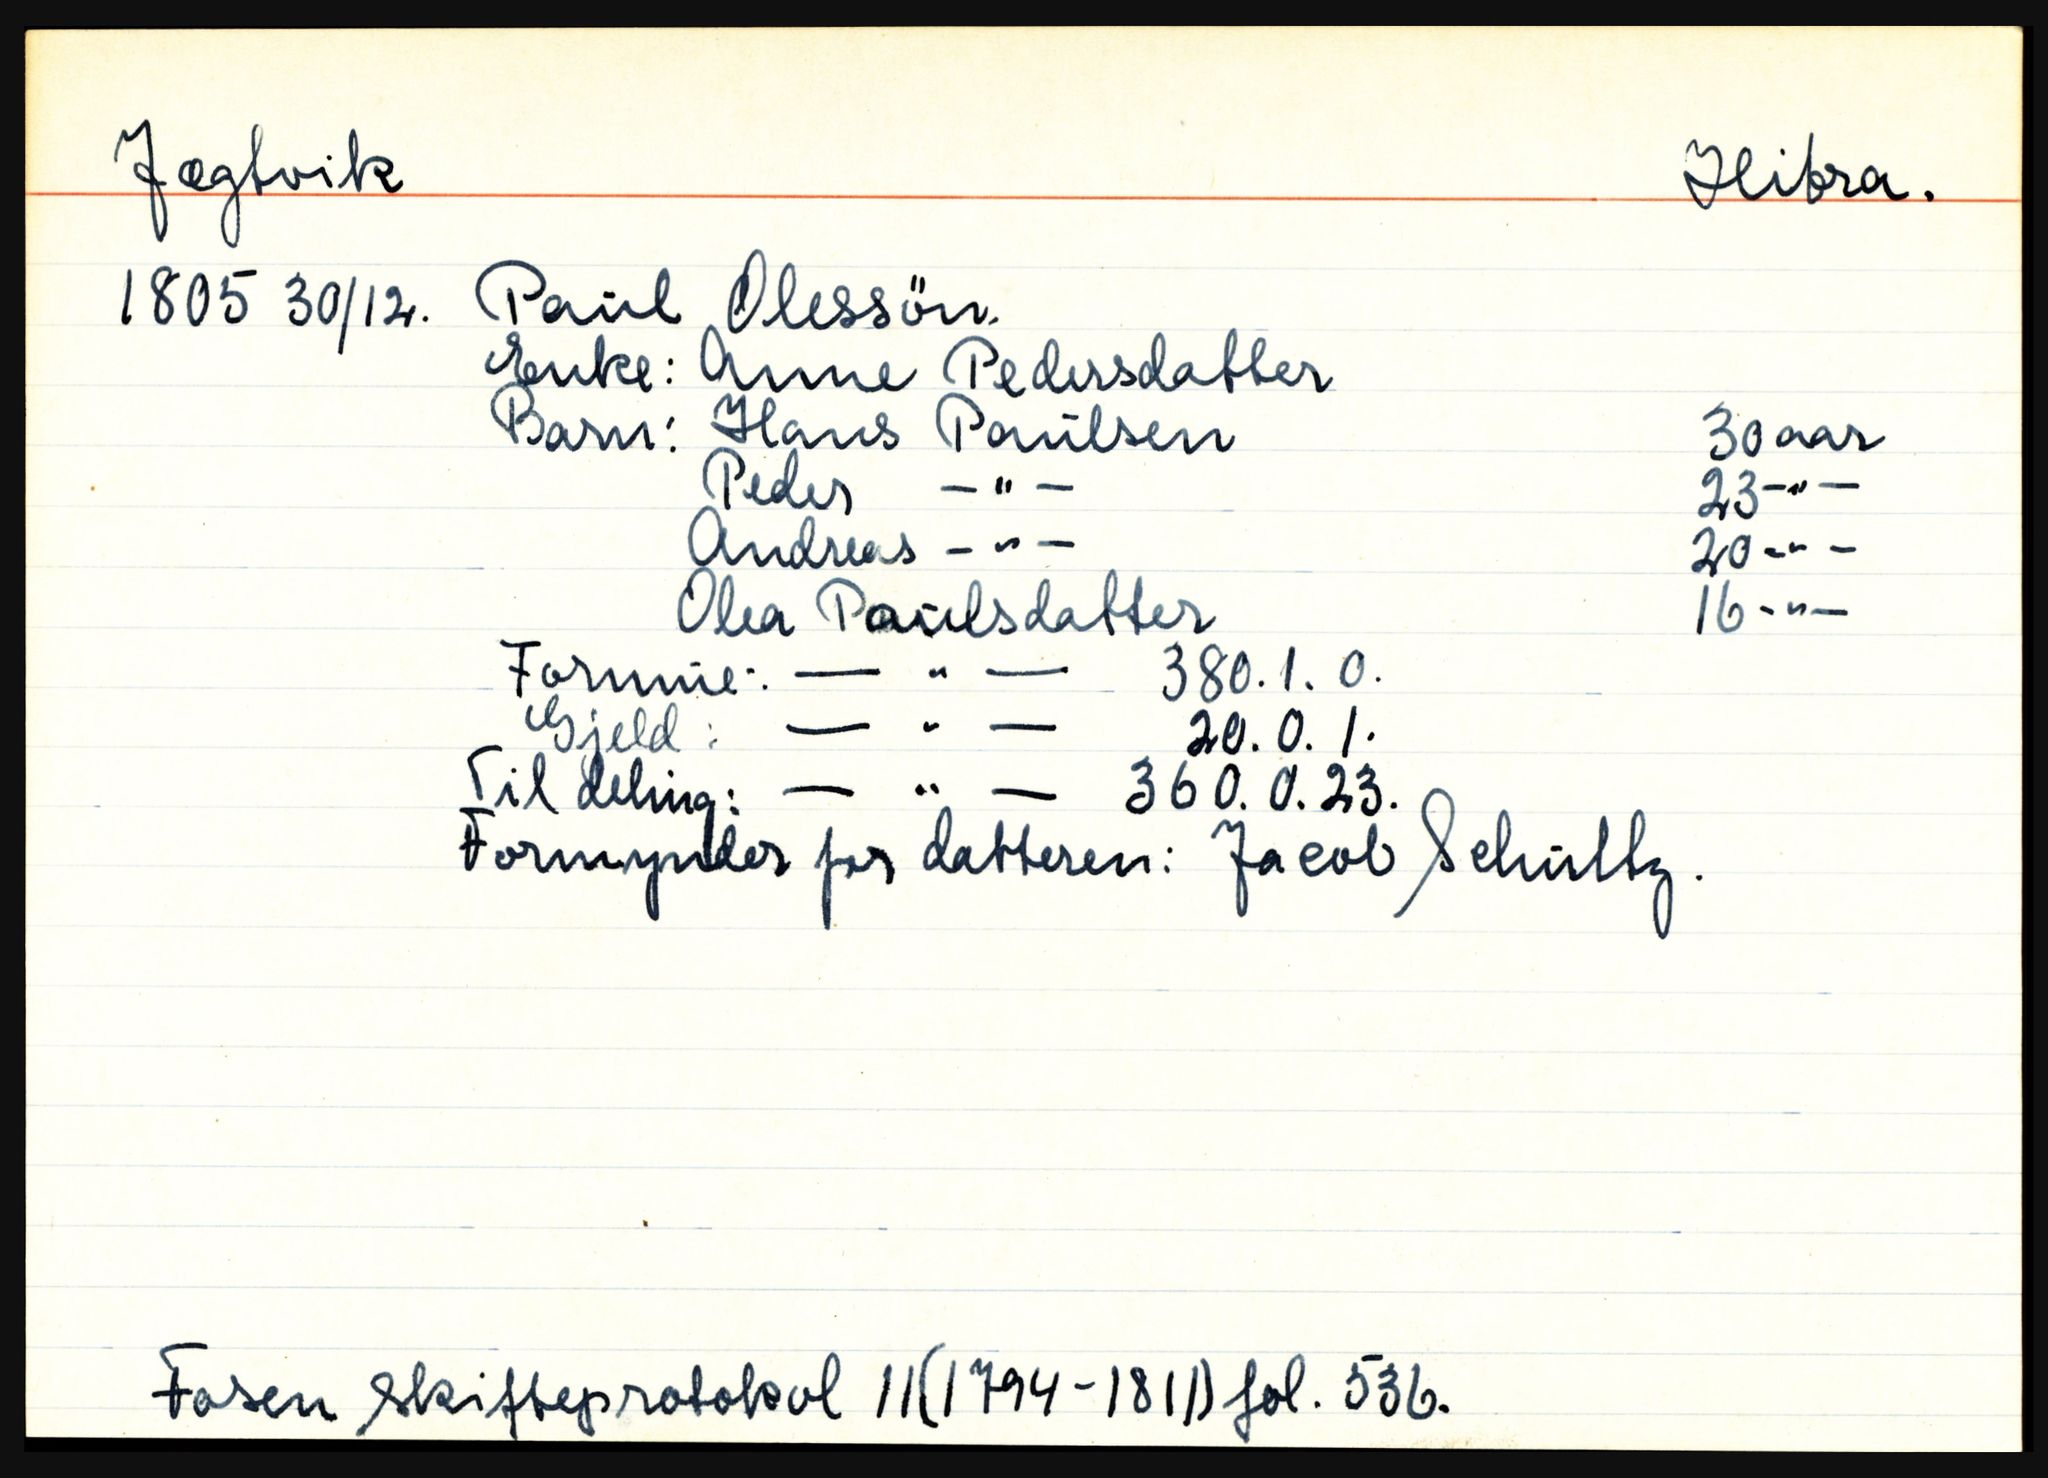 Jægtvik Hitra.
1805 30/12. Paul Olessön.
Enke: Anne Pedersdatter
Barn: Hans Paulsen 30 aar
Peder - " - 23 - " -
Andreas - " - 20 - " -
Olea Paulsdatter 16 - " -
Formue: — " — 380. 1. 0.
Gjeld: — " — 20. 0. 1.
Til deling: — " — 360. 0. 23.
Formynder for datteren: Jacob Schultz.
Fosen skifteprotokol 11 (1794-1811) fol. 536.